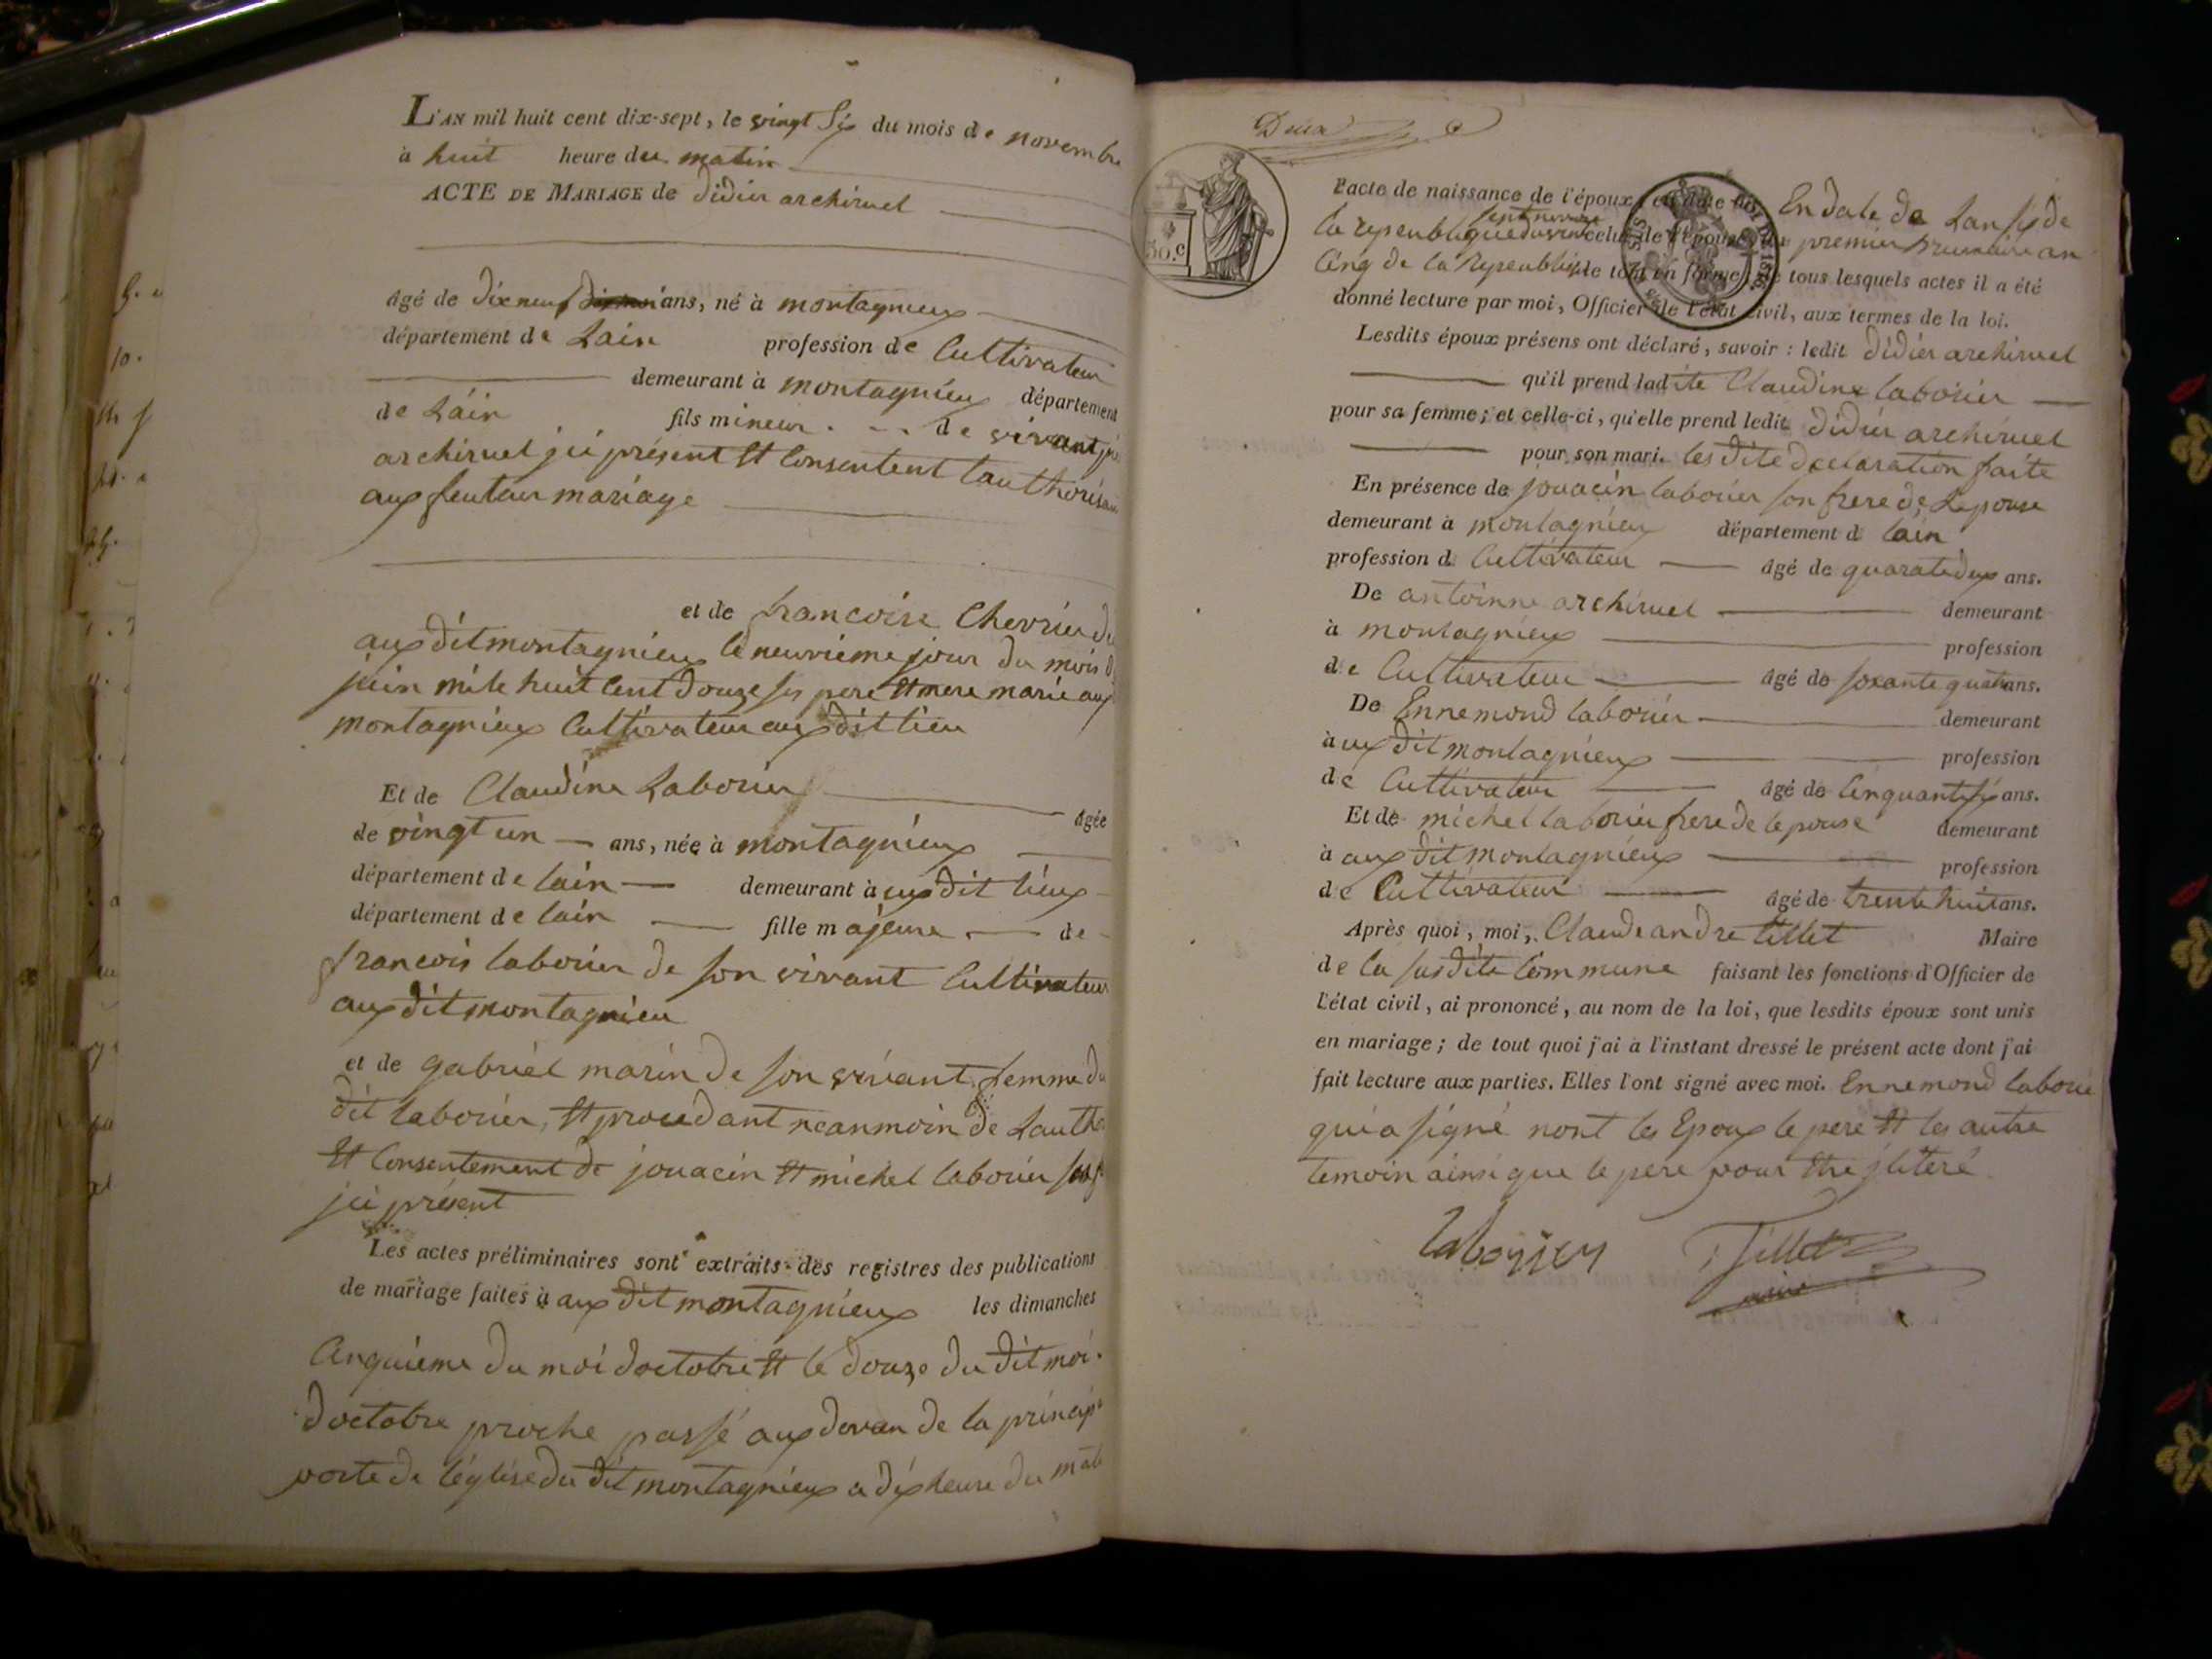 L'AN mil huit cent dix-sept, le vingt six du mois de novembre
à huit heure du matin
ACTE DE MARIAGE de didier archiruel
âgé de dix neuf ans, né à montagnieux
département de Lain profession de Cultivateur
demeurant à montagnieux département
de Lain fils mineur de vivant
archiruel ici présent et Consentent
aux feuteur mariage
et de francoise Chevrier
aux dit montagnieux le neuvieme jour du mois
juin mile huit Cent douze ses pere et mere marie aux
montagnieux Cultivateur aux dit lieu
Et de Claudine Laborier âgée
de vingt un ans, née à montagnieux
département de lain demeurant à aux dit lieux
département de lain fille majeure de
francois laborier de son vivant Cultivateur
aux dit montagnieu
et de gabriel marin de son vivant femme du
dit laborier, et procedant neanmoin de
et Consentement de jouacin et michel laborier
ici présent
Les actes préliminaires sont extraits des registres des publications
de mariage faites à aux dit montagnieux les dimanches
Cinquieme du moi doctobre et le douze du dit moi
doctobre proche passé aux devan de la
porte de léglise du dit montagnieux a dix heure du
30.c
l'acte de naissance de l'époux En date de Lan six de
la repeublique celui de l'épouse premier brumaire an
Cinq de la Repeublique le tout en forme; de tous lesquels actes il a été
donné lecture par moi, Officier de l'état civil, aux termes de la loi.
Lesdits époux présens ont déclaré, savoir : ledit didier archiruel
qu'il prend ladite Claudine laborier
pour sa femme; et celle-ci, qu'elle prend ledit didier archiruel
pour son mari. les dite declaration faite
En présence de jouacin laborier son frere de Lepouse
demeurant à montagnieux département d lain
profession d Cultivateur âgé de quaratedeux ans.
De antoinne archiruel demeurant
à montagnieux profession
de Cultivateur âgé de soxante quatre ans.
De Ennemond laborier demeurant
à ux dit montagnieux profession
de Cultivateur âgé de Cinquantesix ans.
Et de michel laborier frere de lepouse demeurant
à aux dit montagnieux profession
de Cultivateur âgé de trente huit ans.
Après quoi, moi, Claude andre tillet Maire
de la susdite Commune faisant les fonctions d'Officier de
l'état civil, ai prononcé, au nom de la loi, que lesdits époux sont unis
en mariage; de tout quoi j'ai à l'instant dressé le présent acte dont j'ai
fait lecture aux parties. Elles l'ont signé avec moi. Ennemond laborie
qui a signé nont les Epoux le pere et les autre
temoin ainsi que le pere pour etre iliteré
laborier Tillet
maire